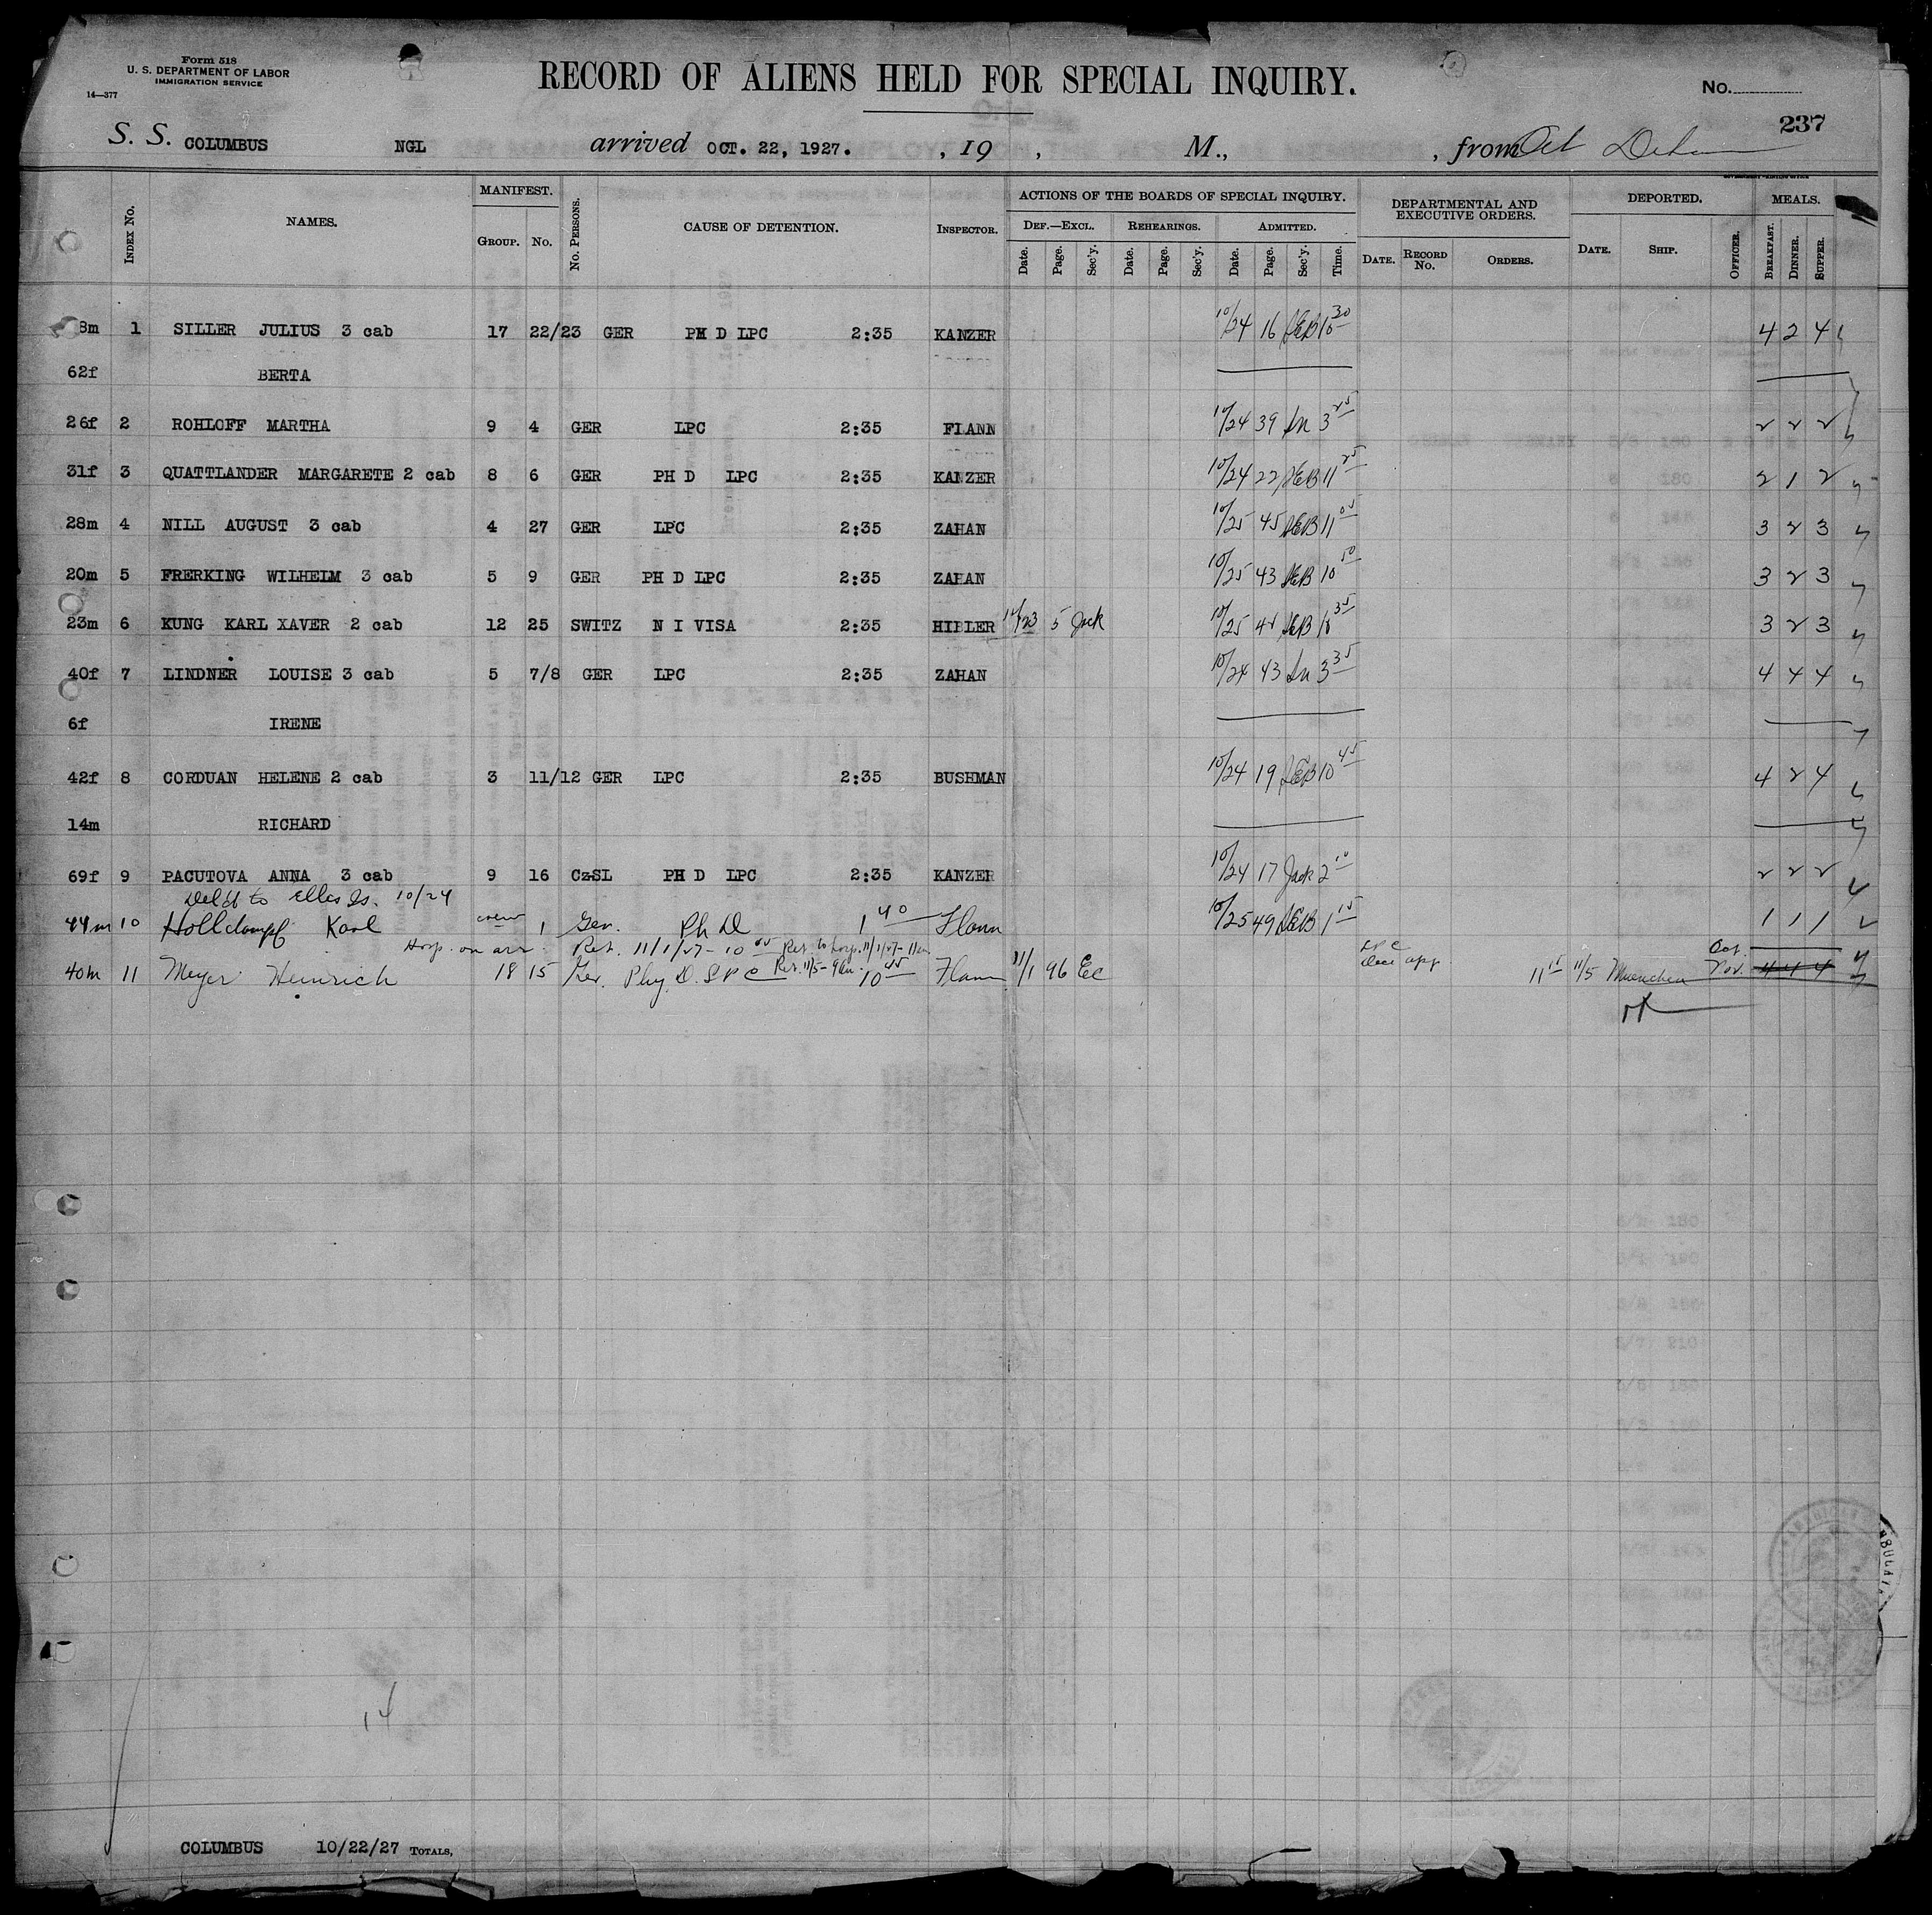 Form 518
U. S. DEPARTMENT OF LABOR
IMMIGRATION SERVICE
14—377
RECORD OF ALIENS HELD FOR SPECIAL INQUIRY.
No.
237
S. S. COLUMBUS NGL arrived OCT. 22, 1927. , 19 , M., , from Oct
INDEX No. NAMES. MANIFEST. GROUP. No. No. PERSONS. CAUSE OF DETENTION. INSPECTOR. ACTIONS OF THE BOARDS OF SPECIAL INQUIRY. DEF.—EXCL. Date. Page. Sec'y. REHEARINGS. Date. Page. Sec'y. ADMITTED. Date. Page. Sec'y. Time. DEPARTMENTAL AND EXECUTIVE ORDERS. DATE. RECORD No. ORDERS. DEPORTED. DATE. SHIP. OFFICER. MEALS. BREAKFAST. DINNER. SUPPER.
8m 1 SILLER JULIUS 3 cab 17 22/23 GER PH D LPC 2:35 KANZER 10/24 16 JEB 10 30 4 2 4
62f BERTA
26f 2 ROHLOFF MARTHA 9 4 GER LPC 2:35 FLANN 10/24 39 3 25 2 2 2
31f 3 QUATTLANDER MARGARETE 2 cab 8 6 GER PH D LPC 2:35 KANZER 10/24 22 JEB 11 25 2 1 2
28m 4 NILL AUGUST 3 cab 4 27 GER LPC 2:35 ZAHAN 10/25 45 JEB 11 05 3 2 3
20m 5 FRERKING WILHELM 3 cab 5 9 GER PH D LPC 2:35 ZAHAN 10/25 43 JEB 10 50 3 2 3
23m 6 KUNG KARL XAVER 2 cab 12 25 SWITZ N I VISA 2:35 HIBLER 5 Jack 10/25 42 JEB 10 35 3 2 3
40f 7 LINDNER LOUISE 3 cab 5 7/8 GER LPC 2:35 ZAHAN 10/24 43 3 35 4 4 4
6f IRENE
42f 8 CORDUAN HELENE 2 cab 3 11/12 GER LPC 2:35 BUSHMAN 10/24 19 JEB 10 45 4 2 4
14m RICHARD
69f 9 PACUTOVA ANNA 3 cab 9 16 CzSL PH D LPC 2:35 KANZER 10/24 17 Jack 2 10 2 2 2
Deld to Ellis Is. 10/24
44m 10 Holldampf Karl crew 1 Ger. Ph D 1 40 Flann 10/25 49 JEB 1 15 1 1 1
Hosp. on arr. Ret. 11/1/27 - 10 05 Ret. to hosp. 11/1/27 - 11 am
40m 11 Meyer Heinrich 18 15 Ger. Phy. D. L P C Ret. 11/5 - 9 am. 10 45 Flann 11/1 96 EC LPC app 11 15 11/5 Muenchen Oct. Nov. 4 4 4
14
COLUMBUS 10/22/27 TOTALS,